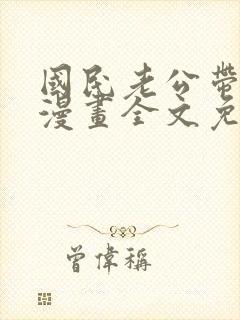 國民老公帶
漫畫全文免
曾偉稱